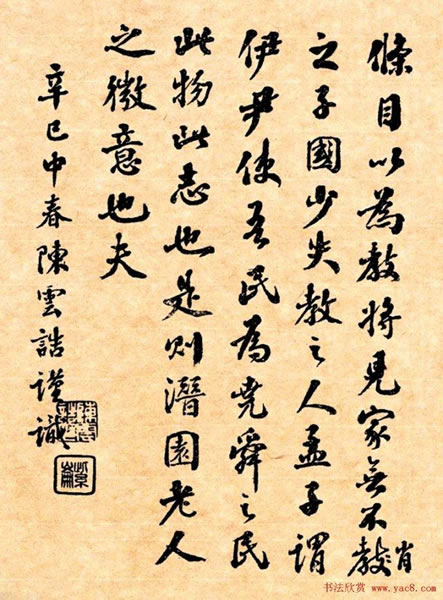 條目以為教將見家無不肖
之子國少失教之人孟子謂
伊尹使吾民為堯舜之民
此物此志也是則潛園老人
之微意也夫
辛巳中春陳雲誥謹識
书法欣赏 www.yac8.com